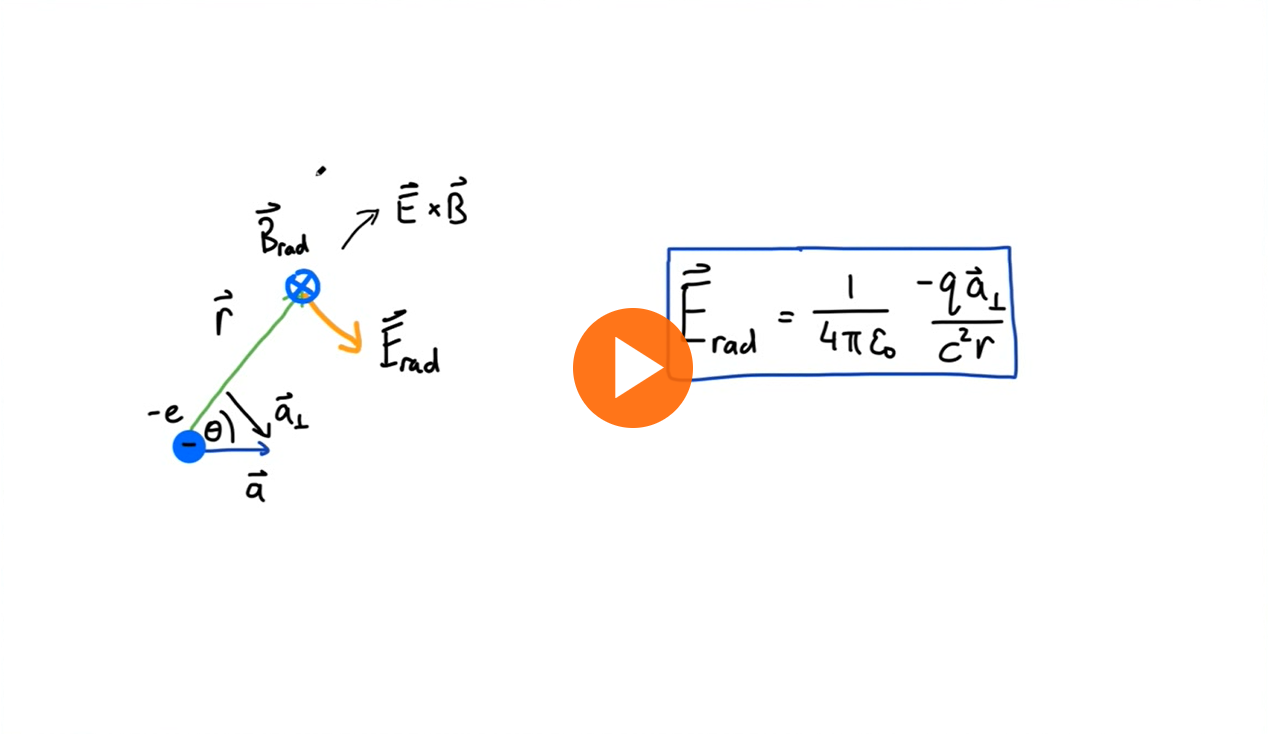 E⃗ × B⃗
B⃗rad
r⃗
E⃗rad
-e
θ
a⃗⊥
−
a⃗
E⃗rad = 1/(4πε₀) -q a⃗⊥/(c²r)